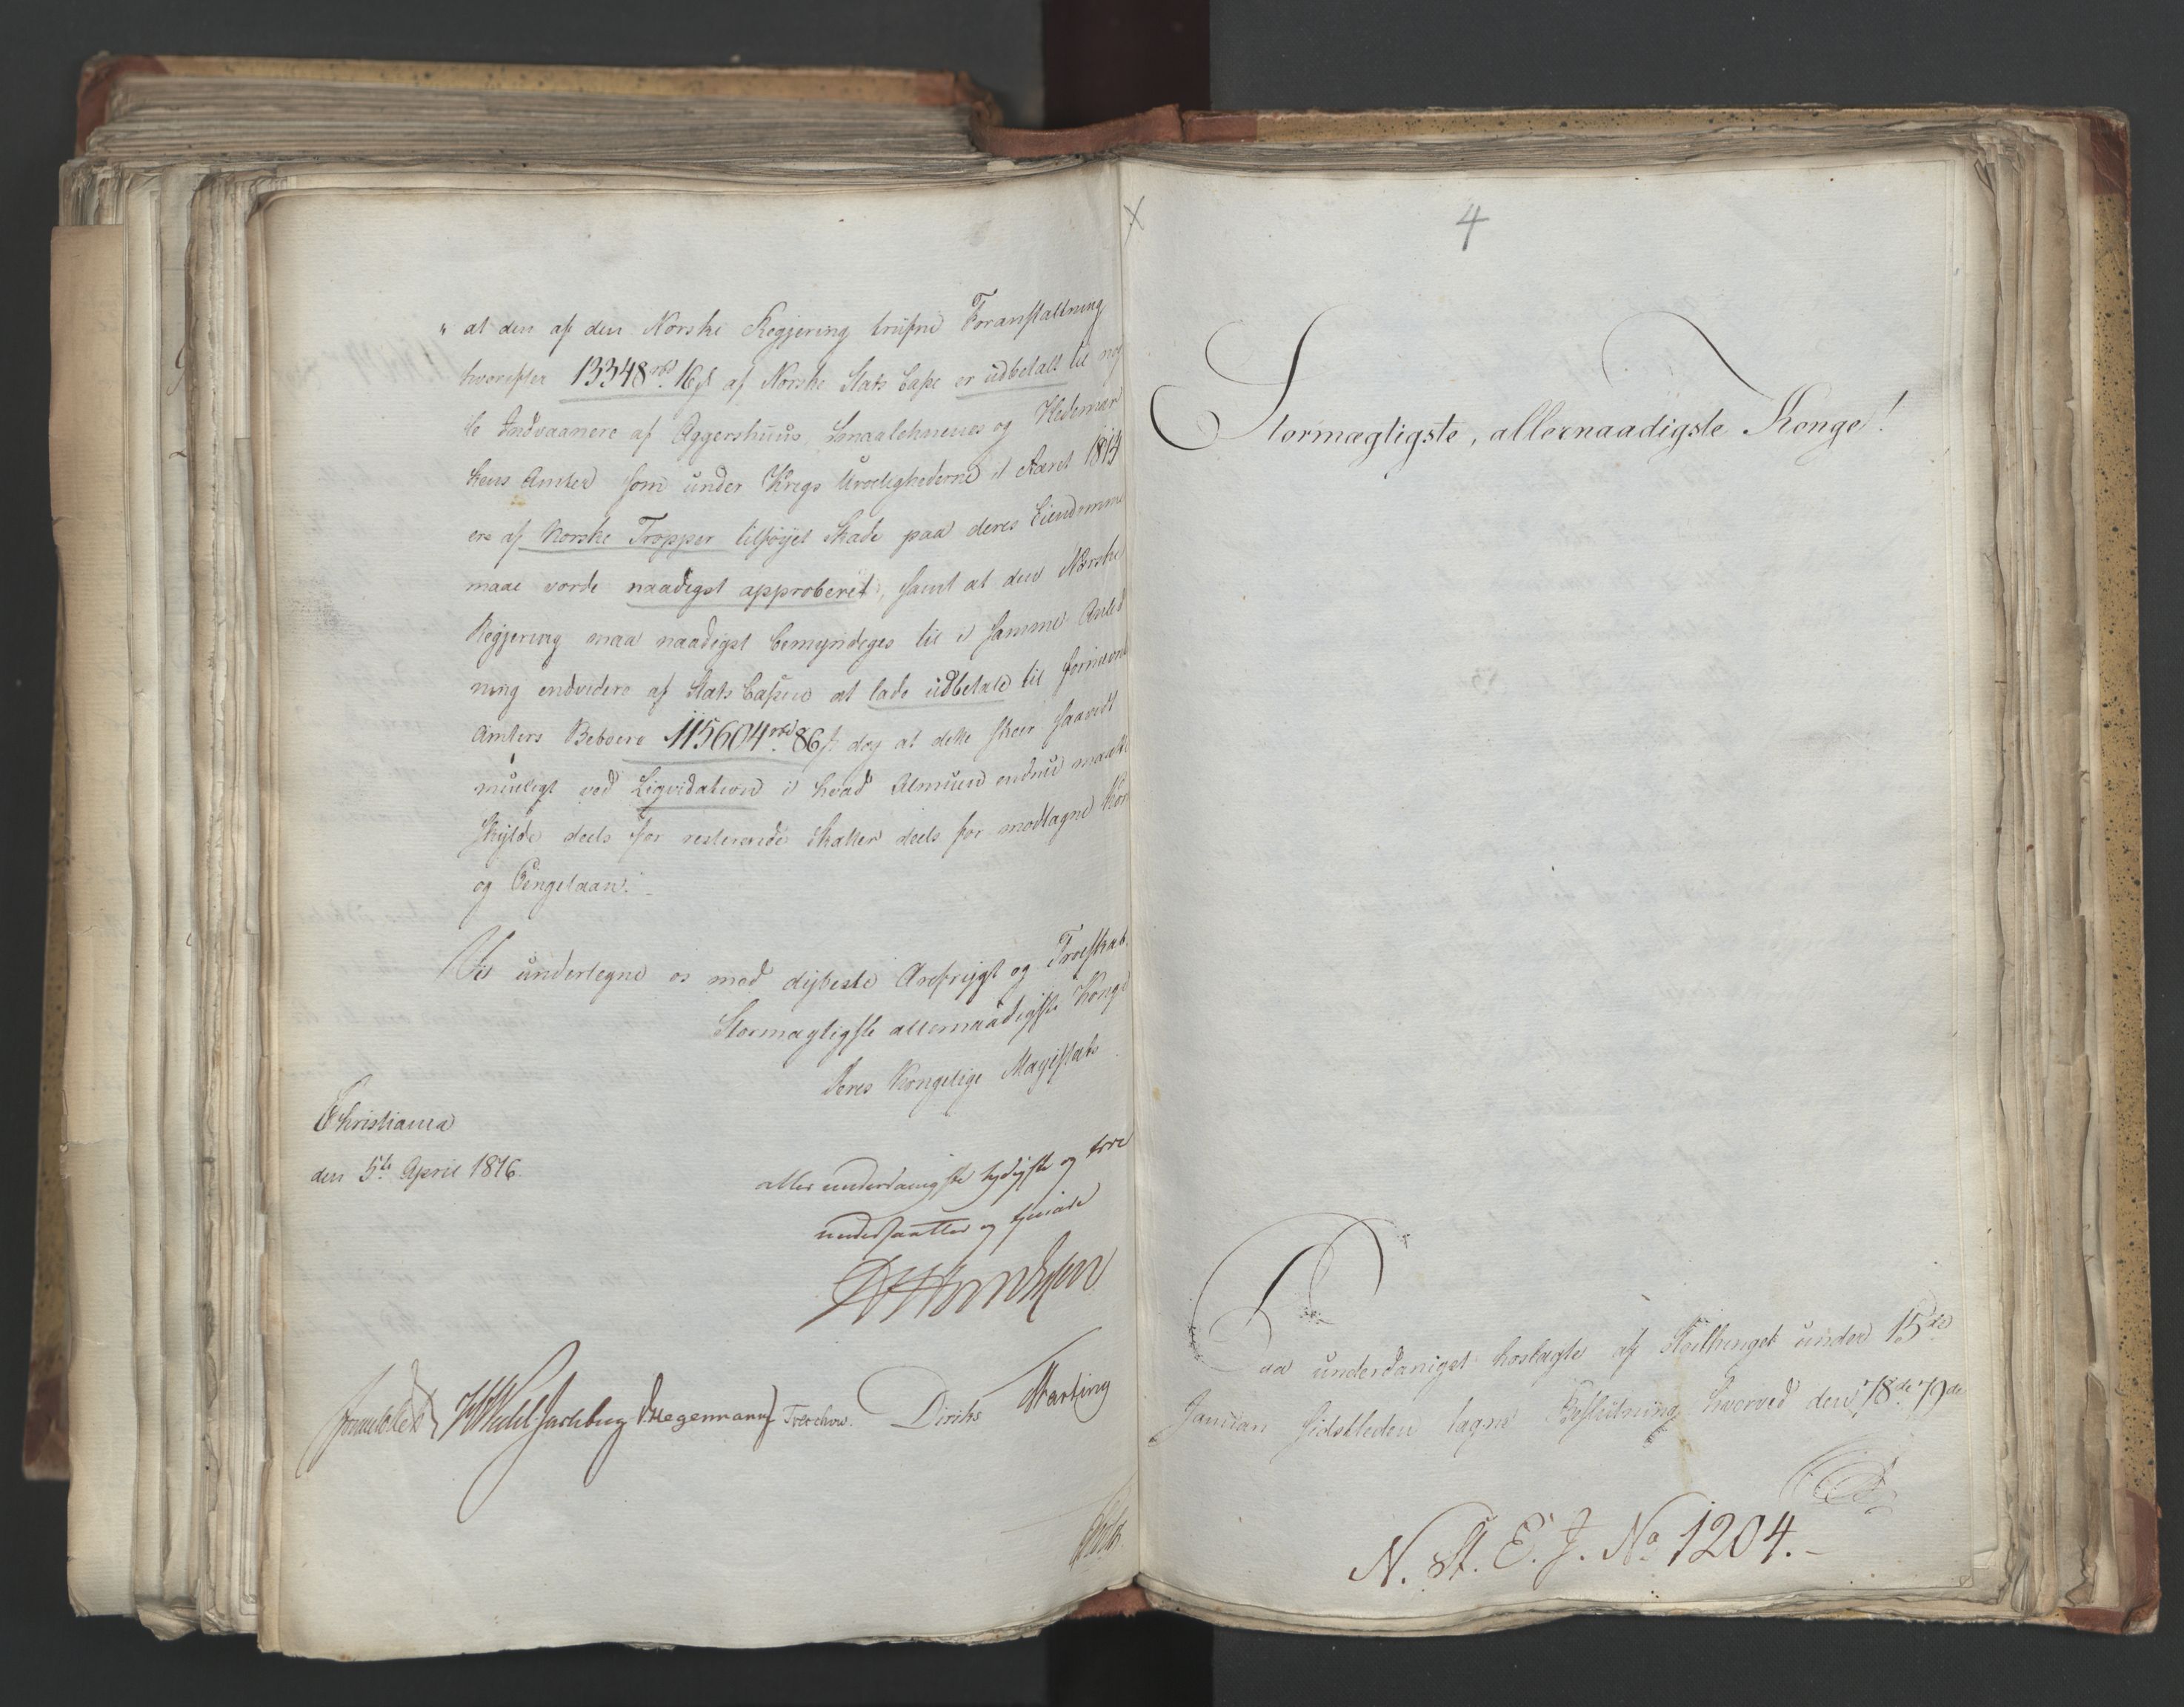 " at den af den Norske Regjering trufne Foranstaltning
hvorefter 13348 rbd 16 s af Norske Stats Casse er udbetalt til nog
le Indvaanere af Aggershuus, Smaalehnenes og Hedemar
kens Amter som under Krigs Uroelighederne i Aaret 1814
ere af Norske Tropper tilføyet Skade paa deres Eiendomme
maae vorde naadigst approberet, samt at den Norske
Regjering maa naadigst bemyndiges til i samme Anled
ning endvidere af Stats Cassen at lade udbetale til fornævnte
Amters Beboere 115604 rbd 86 s dog at dette skeer saavidt
mueligt ved Liqvidation i hvad Almuen endnu maatte
skylde deels for resterende Skatter deels for modtagne Korn
og Pengelaan."
Vi undertegne os med dybeste Ærefrygt og Troeskab.
Stormægtigste allernaadigste Konge
Deres Kongelige Majestæts
Christiania
den 5te April 1816.
allerunderdanigste lydigste og troe
undersaatter og tjenere
Sommerhielm HWedel Jarlsberg DHegermann Treschow. Diriks
4
Stormægtigste, allernaadigste Konge!
Paa underdanigst hoslagte af Storthinget under 15de
Januar sidstleden tagne Beslutning hvorved den 78de 79de
N. St. E. J. No 1204.-